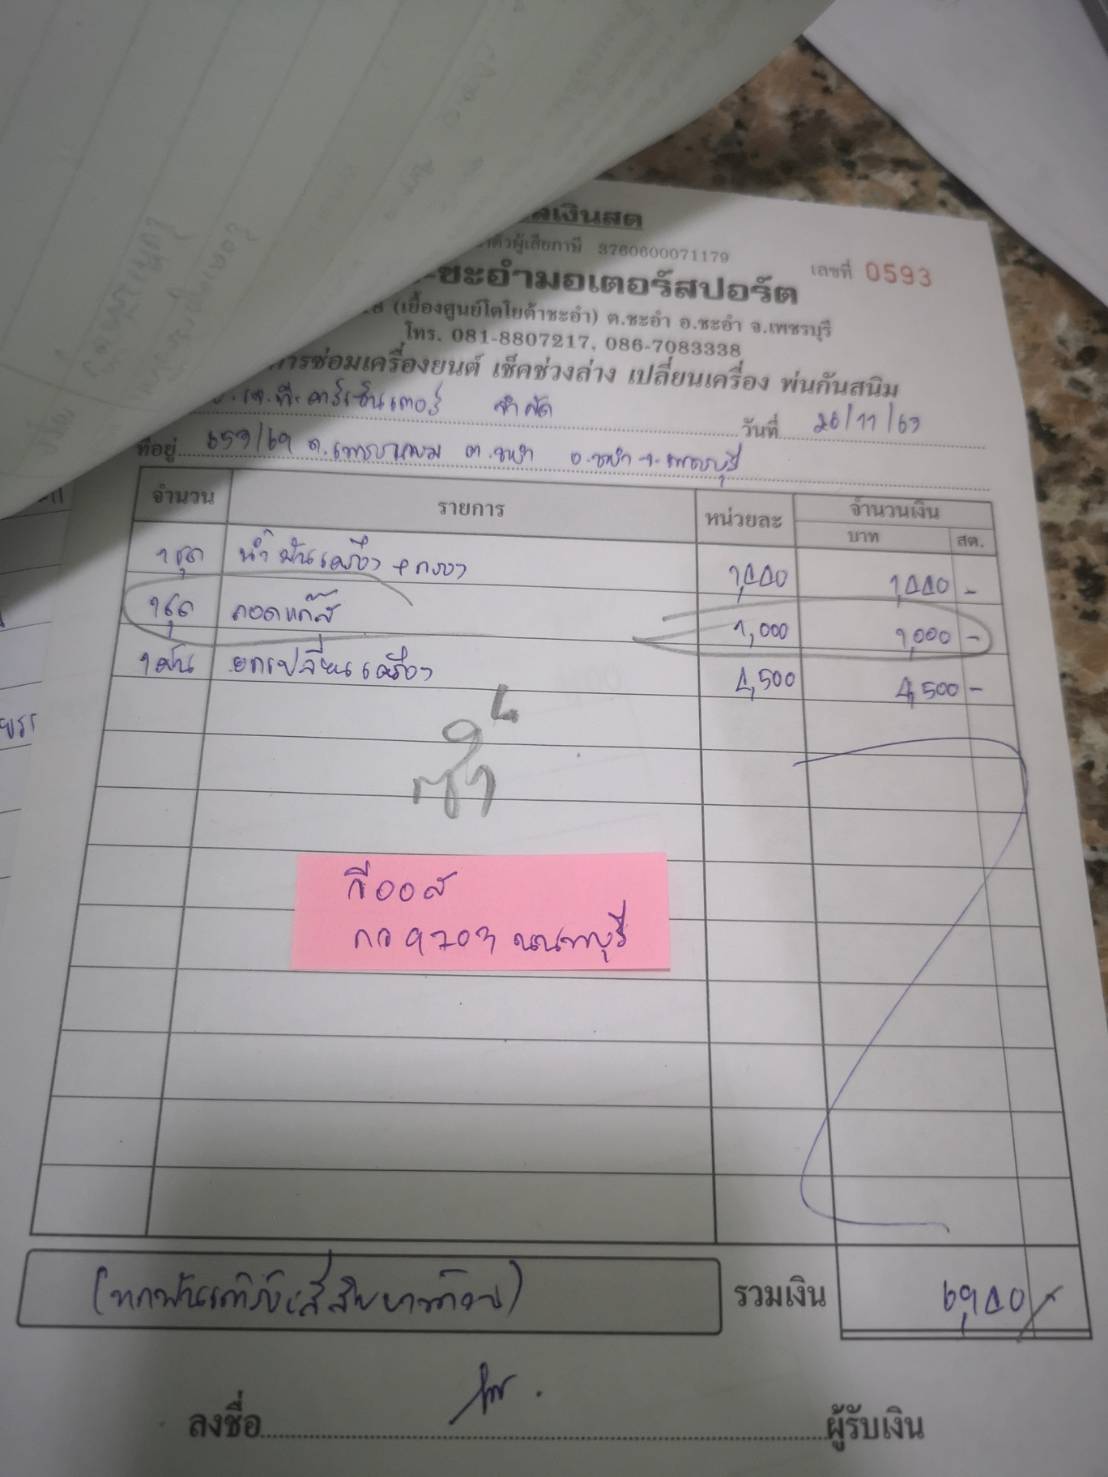 ลเงินสด
ตัวผู้เสียภาษี 3760600071179
เลขที่ 0593
-ชะอำมอเตอร์สปอร์ต
(เยื้องศูนย์โตโยต้าชะอำ) ต.ชะอำ อ.ชะอำ จ.เพชรบุรี
โทร. 081-8807217, 086-7083338
การซ่อมเครื่องยนต์ เช็คช่วงล่าง เปลี่ยนเครื่อง พ่นกันสนิม
คาร์เซ็นเตอร์ จำกัด วันที่ 26/11/63
ที่อยู่ 659/69 ถ.เพชรเกษม ต.ชะอำ อ.ชะอำ จ.เพชรบุรี
จำนวน รายการ หน่วยละ จำนวนเงิน
บาท สต.
1ชุด น้ำมันเครื่อง + กรอง 1,440 1,440 -
1ชุด ถอดแก๊ส 1,000 1,000 -
1คัน ยกเปลี่ยนเครื่อง 4,500 4,500 -
ซ้ำ
วีออส
กว 9703 นนทบุรี
(หกพันเก้าร้อยสี่สิบบาทถ้วน) รวมเงิน 6,940
ลงชื่อ ผู้รับเงิน